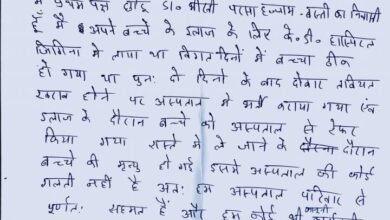 मैं प्रथम पक्ष
हूँ मैं अपने बच्चे के इलाज के लिए के. डी. हास्पिटल
में लाया था विगत दिनों में बच्चा ठीक
हो गया था पुनः दो दिनों के बाद दोबारा तबियत
खराब होने पर अस्पताल में भर्ती कराया गया एवं
इलाज के दौरान बच्चे को अस्पताल से रेफर
किया गया रास्ते में ले जाने के दौरान
बच्चे की मृत्यु हो गई इसमे अस्पताल की कोई
गलती नहीं है अतः हम अस्पताल परिवार से
पूर्णतः सहमत हैं और हम कोई भी